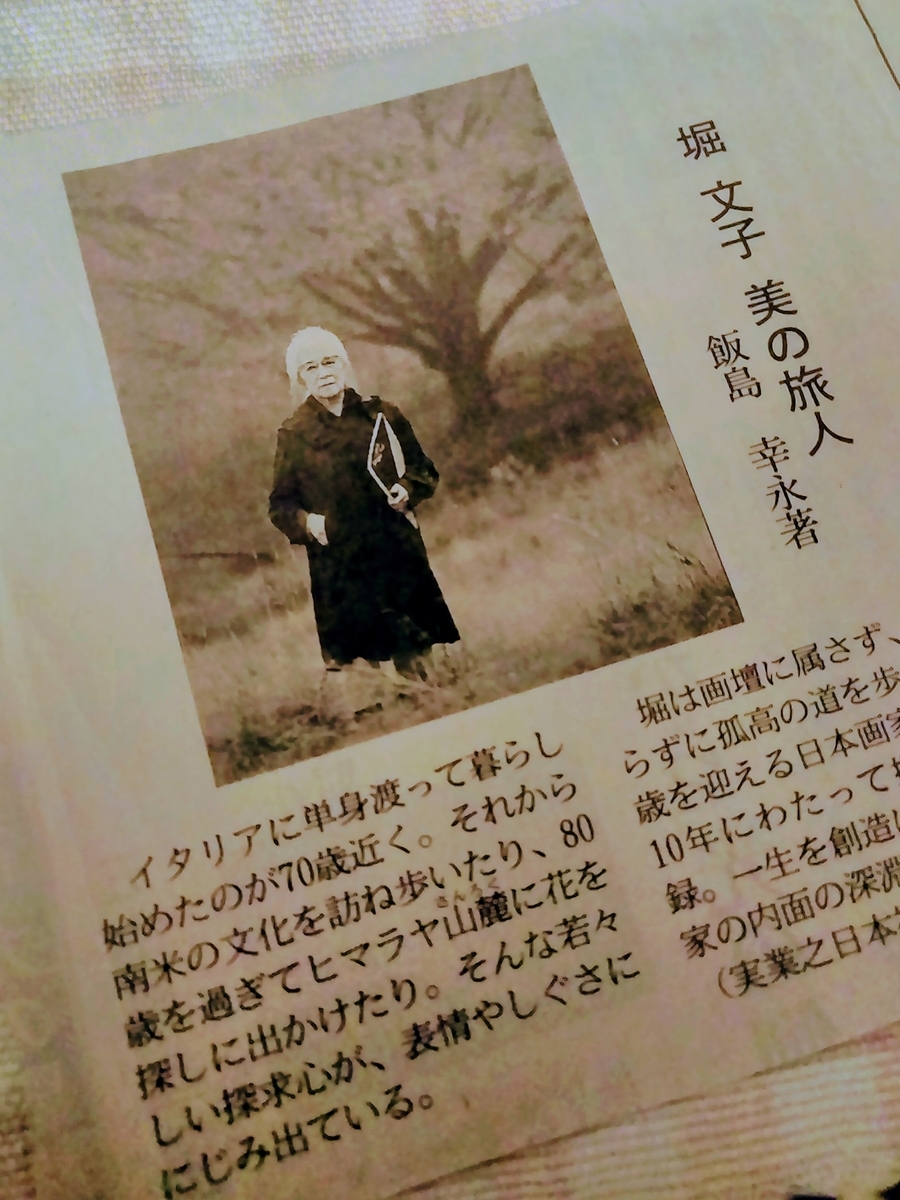 堀 文子 美の旅人
飯島 幸永著
イタリアに単身渡って暮らし
始めたのが70歳近く。それから
南米の文化を訪ね歩いたり、80
歳を過ぎてヒマラヤ山麓に花を
さんろく
探しに出かけたり。そんな若々
しい探求心が、表情やしぐさに
にじみ出ている。
堀は画壇に属さず、
らずに孤高の道を歩
歳を迎える日本画家
10年にわたって
録。一生を創造
家の内面の深淵
(実業之日本